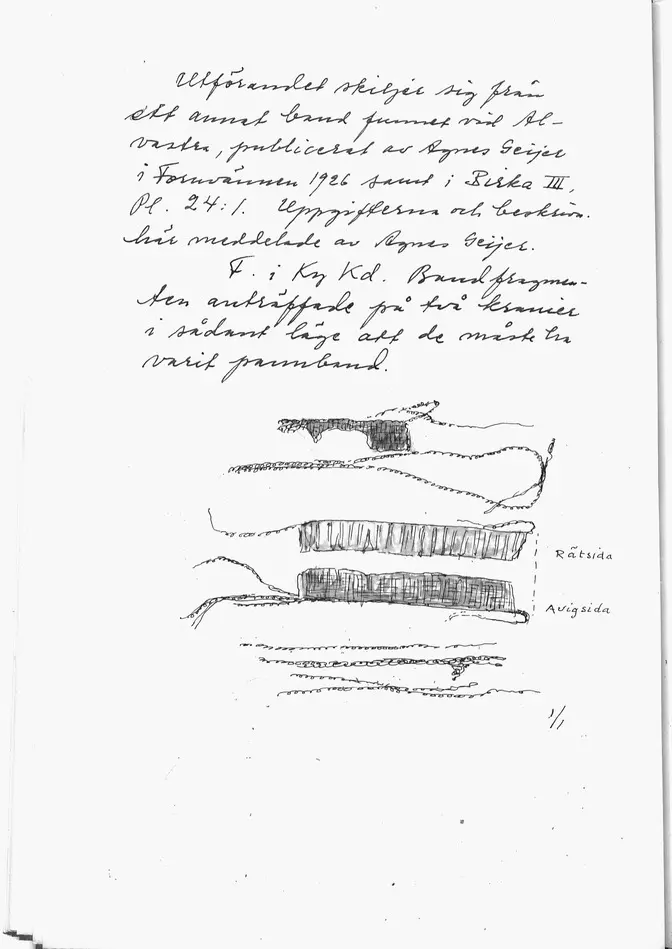 Utförandet skiljer sig från
ett annat band funnet vid Al-
vastra, publicerat av Agnes Geijer
i Fornvännen 1926 samt i Birka III,
Pl. 24:1. Uppgifterna och beskrivn.
här meddelade av Agnes Geijer.
F. i Ky Kd. Bandfragmen-
ten anträffade på två kranier
i sådant läge att de måste ha
varit pannband.
Rätsida
Avigsida
1/1